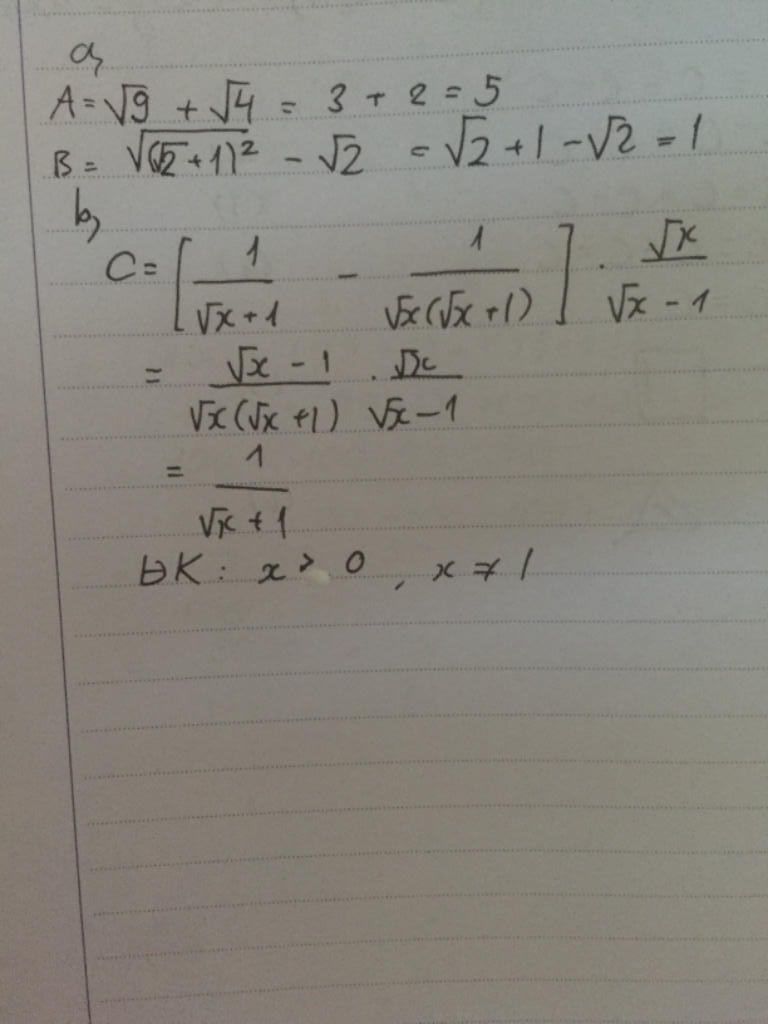 a,
A = √9 + √4 = 3 + 2 = 5
B = √(√2 + 1)² - √2 = √2 + 1 - √2 = 1
b,
C = [1/(√x + 1) - 1/(√x(√x + 1))] . √x/(√x - 1)
= (√x - 1)/(√x(√x + 1)) . √x/(√x - 1)
= 1/(√x + 1)
ĐK : x > 0 , x ≠ 1